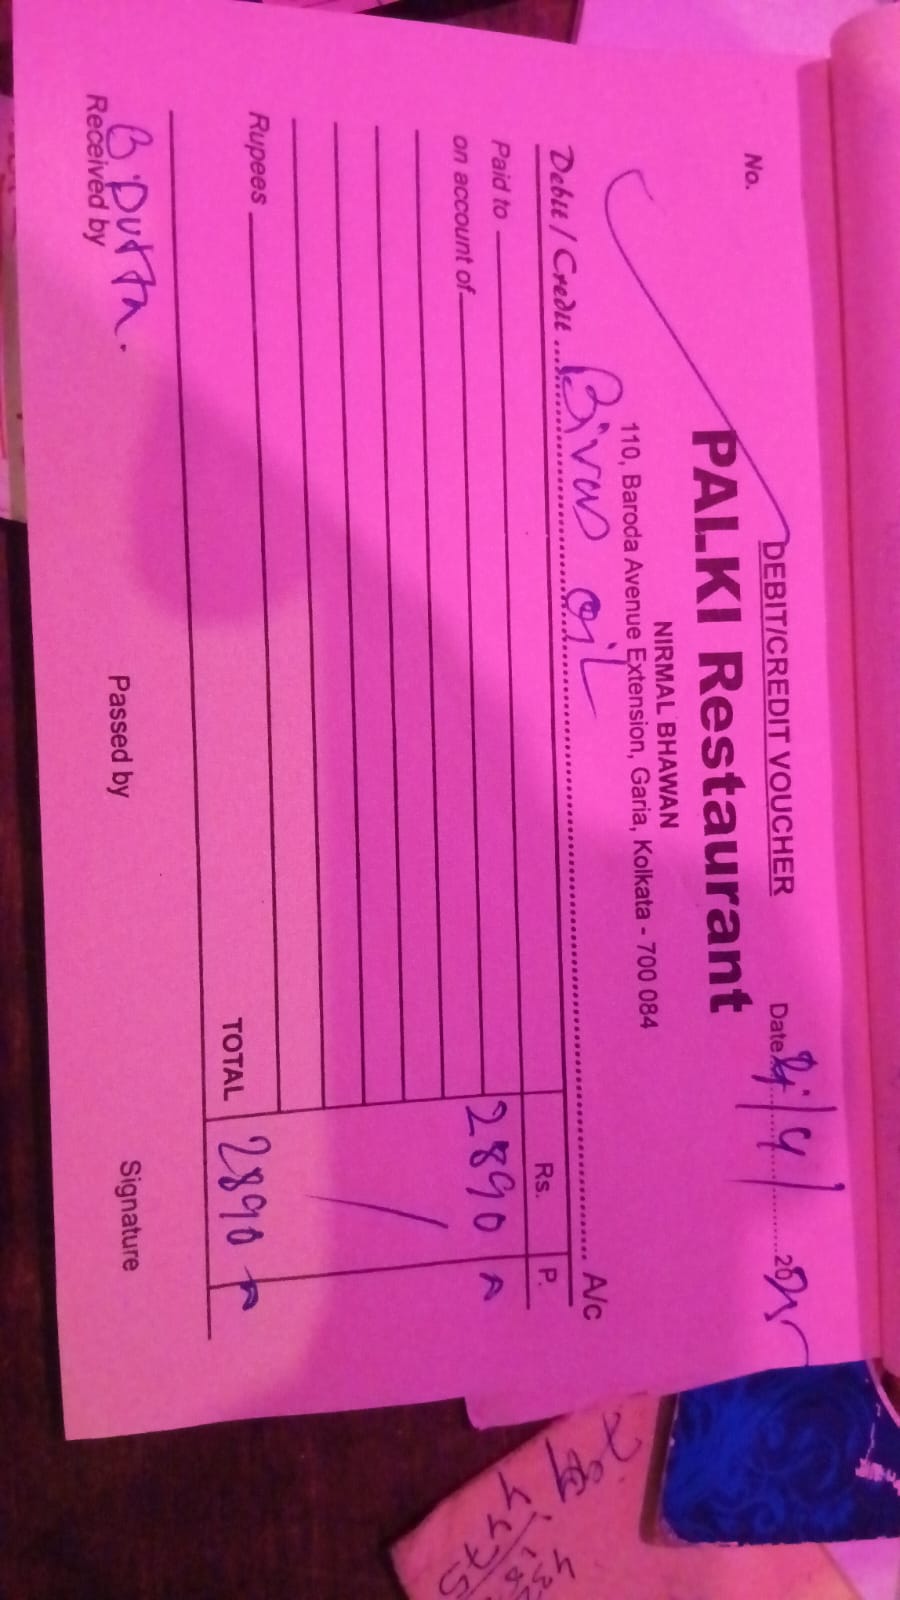 DEBIT/CREDIT VOUCHER
No.
Date 20
PALKI Restaurant
NIRMAL BHAWAN
110, Baroda Avenue Extension, Garia, Kolkata - 700 084
Debit / Credit Bivas oil A/c
Rs. P.
Paid to 2890
on account of
Rupees
TOTAL 2890
B. Dutta.
Received by Passed by Signature